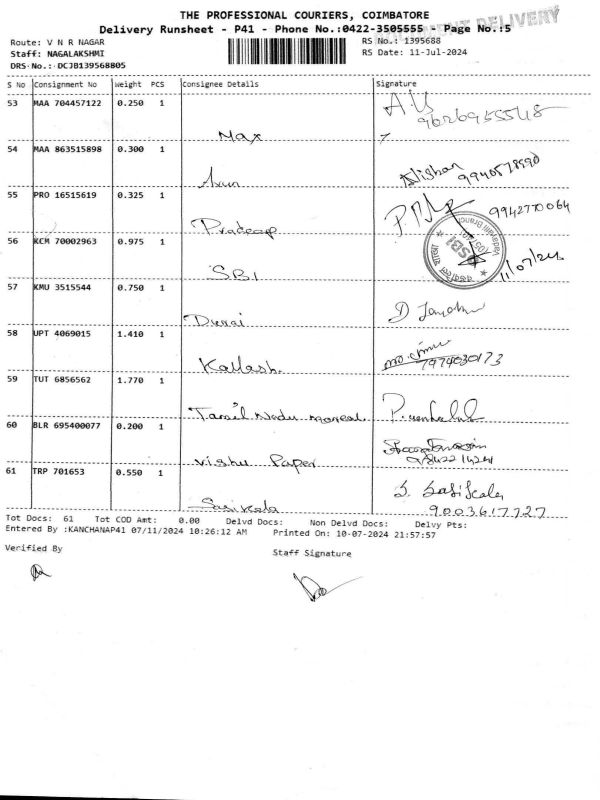 THE PROFESSIONAL COURIERS, COIMBATORE
DELIVERY
Delivery Runsheet - P41 - Phone No.:0422-3505555 - Page No.:5
Route: V N R NAGAR
RS No.: 1395688
Staff: NAGALAKSHMI
RS Date: 11-Jul-2024
DRS No.: DCJB139568805
S No Consignment No Weight PCS Consignee Details Signature
53 MAA 704457122 0.250 1
9626955548
Max
54 MAA 863515898 0.300 1
Nishan 9940578590
Arun
55 PRO 16515619 0.325 1
9942770064
Pradeep
56 KCM 70002963 0.975 1
SBI
SBI
11/07/24
57 KMU 3515544 0.750 1
Durai
58 UPT 4069015 1.410 1
7974030173
Kailash
59 TUT 6856562 1.770 1
Tamil Nadu
60 BLR 695400077 0.200 1
Vishu Paper
61 TRP 701653 0.550 1
S. Sasikala
Sasikala
9003617727
Tot Docs: 61 Tot COD Amt: 0.00 Delvd Docs: Non Delvd Docs: Delvy Pts:
Entered By :KANCHANAP41 07/11/2024 10:26:12 AM Printed On: 10-07-2024 21:57:57
Verified By
Staff Signature